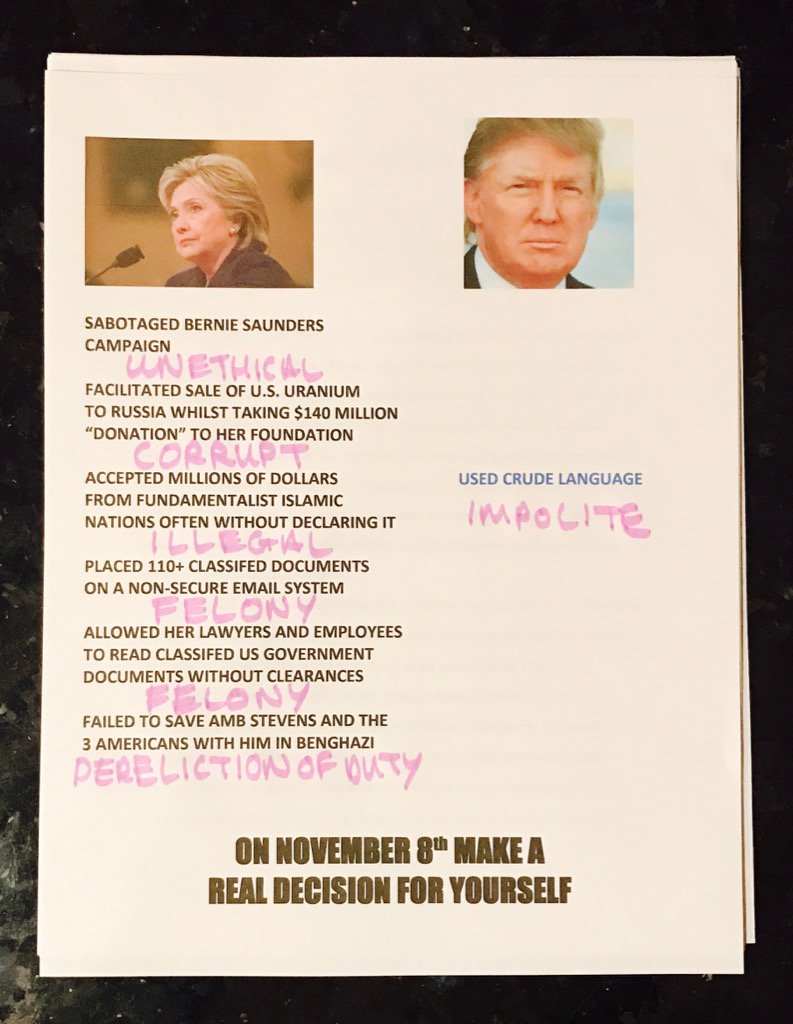 SABOTAGED BERNIE SAUNDERS
CAMPAIGN
UNETHICAL
FACILITATED SALE OF U.S. URANIUM
TO RUSSIA WHILST TAKING $140 MILLION
“DONATION” TO HER FOUNDATION
CORRUPT
ACCEPTED MILLIONS OF DOLLARS
FROM FUNDAMENTALIST ISLAMIC
NATIONS OFTEN WITHOUT DECLARING IT
ILLEGAL
PLACED 110+ CLASSIFED DOCUMENTS
ON A NON-SECURE EMAIL SYSTEM
FELONY
ALLOWED HER LAWYERS AND EMPLOYEES
TO READ CLASSIFED US GOVERNMENT
DOCUMENTS WITHOUT CLEARANCES
FELONY
FAILED TO SAVE AMB STEVENS AND THE
3 AMERICANS WITH HIM IN BENGHAZI
DERELICTION OF DUTY
USED CRUDE LANGUAGE
IMPOLITE
ON NOVEMBER 8th MAKE A
REAL DECISION FOR YOURSELF